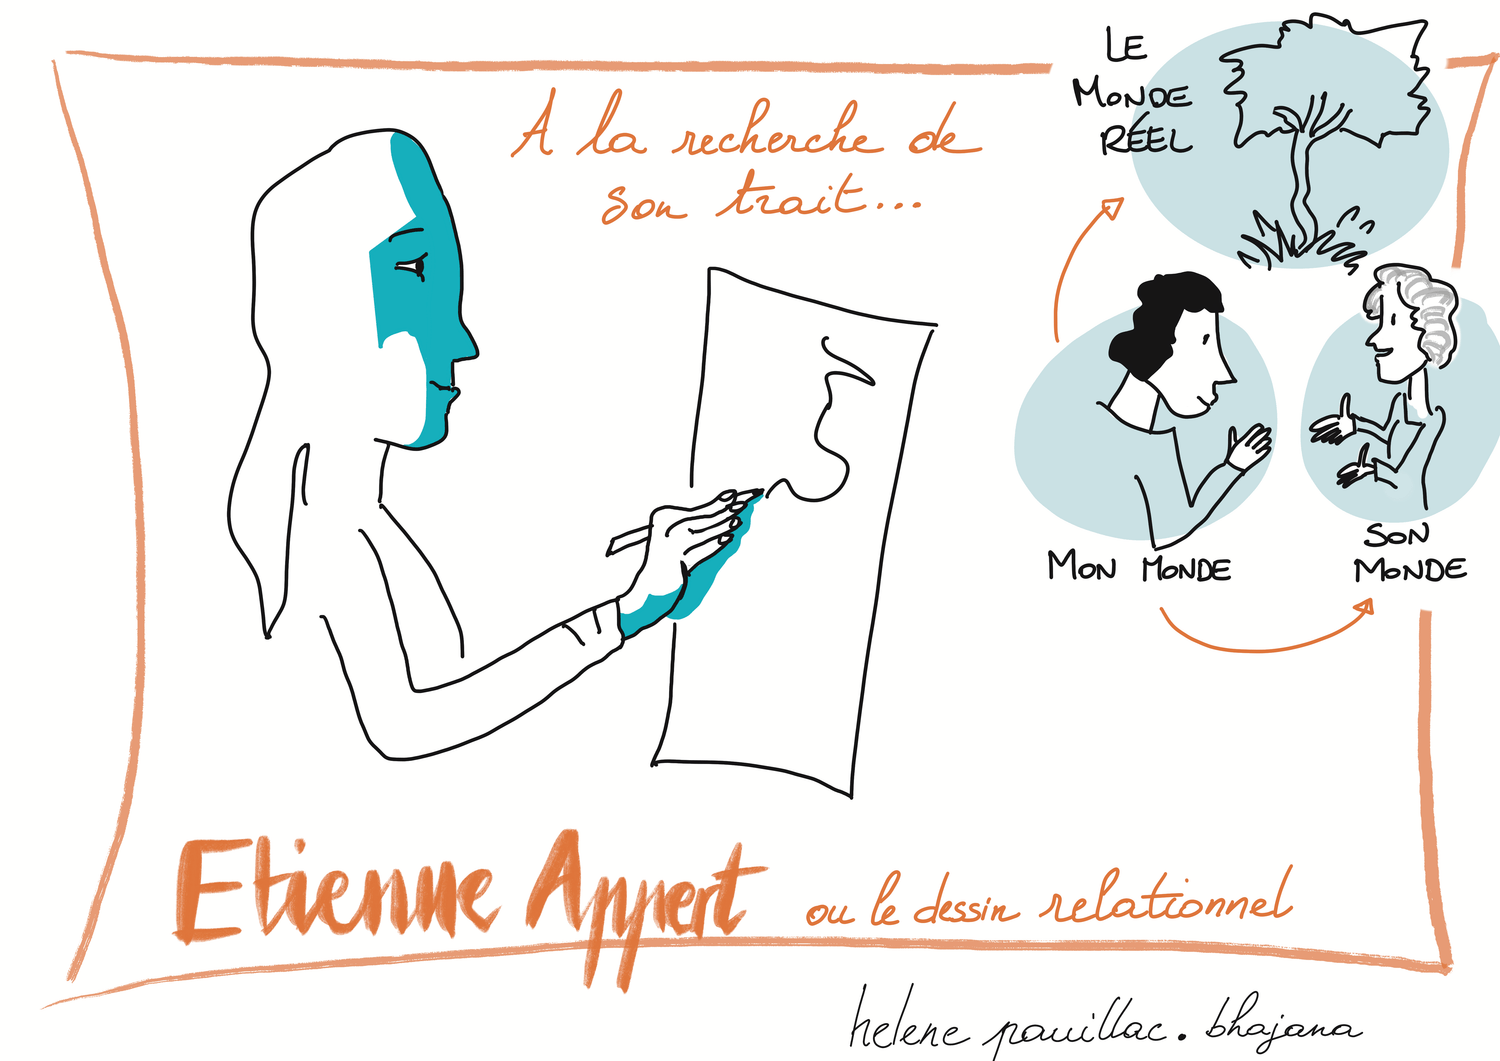 A la recherche de
son trait...
LE
MONDE
RÉEL
MON MONDE
SON
MONDE
Etienne Appert ou le dessin relationnel
helene pauillac. bhajana